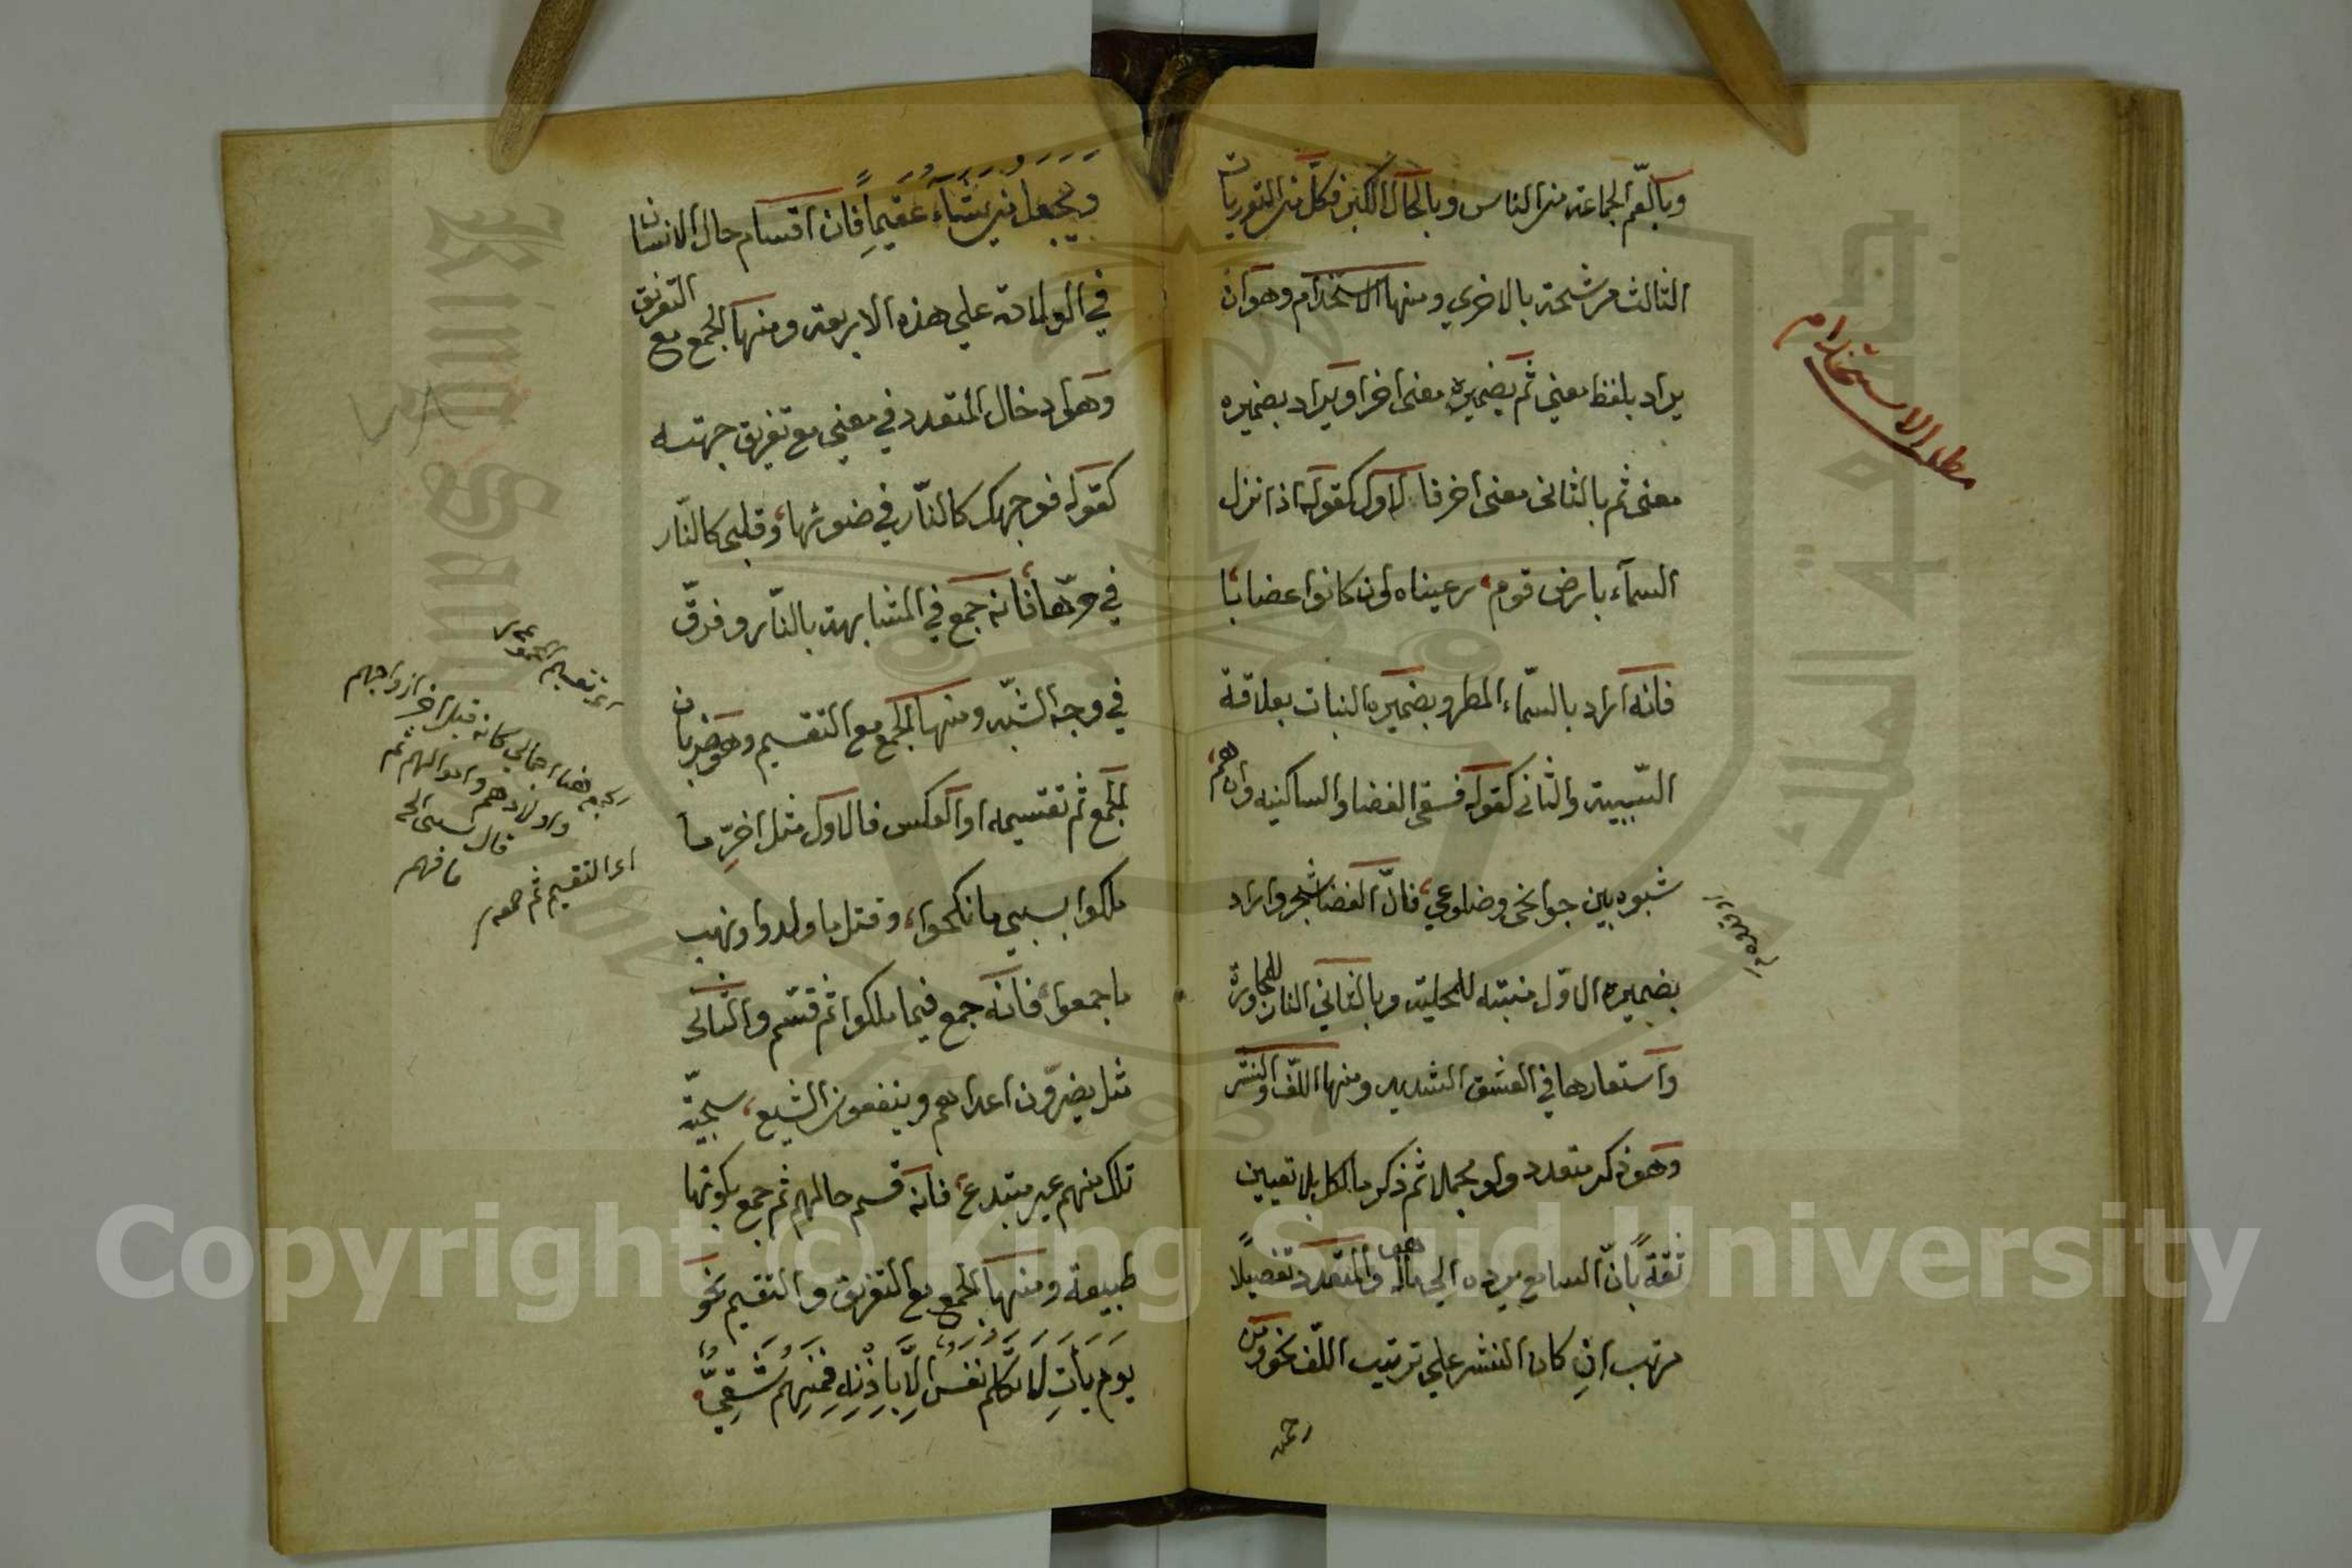 وبالعّم الجماعة من الناس وبالخال الكبر فكل من التوريات
الثالث مرشحة بالاخري ومنها الاستخدام وهو ان
يراد بلفظ معنى ثم بضميره معنى اخر او يراد بضميره
معنى ثم بالثانى معنى اخر فالاول كقوله اذا نزل
السمآء بارض قوم رعيناه وان كانوا غضابا
فانه اراد بالسّماء المطر وبضميره النبات بعلاقة
السّببية والثانى كقوله فسقى الغضا والساكنيه وان هم
شبوه بين جوانحى وضلوعي فانّ الغضا شجر واراد
بضميره الاوّل منبته للمحلية وبالثاني النار للمجاورة
واستعارها في العشق الشديد ومنها اللّف والنشر
وهو ذكر متعدد ولو مجملا ثم ذكر ما لكل بلا تعيين
ثقةً بانّ السامع يرده الى ما له والمتعدد تفصيلًا
مرتب ان كان النشر على ترتيب اللّف نحو ومن
رحمته
مطلب الاستخدام
ويجعل من يشآء عقيماً فان اقسام حال الانسان
في الولادة علي هذه الاربعة ومنها الجمع مع التفريق
وهو ادخال المتعدد في معنى مع تفريق جهته
كقوله فوجهك كالنّار في ضوئها وقلبى كالنّار
في حرّها فانه جمع في المشابهة بالنّار وفرّق
في وجه الشّبه ومنها الجمع مع التقسيم وهو ضربان
الجمع ثم تقسيمه او العكس فالاول مثل اخرّ ما
ملكوا بسبي ما نكحوا وقتل ما ولدوا ونهب
ما جمعوا فانه جمع فيما ملكوا ثم قسّم والثانى
مثل يضرّون اعداهم وينفعون الشيع سجيّة
تلك منهم غير مبتدع فانه قسم حالهم ثم جمع بكونها
طبيعة ومنها الجمع مع التفريق والتقسيم نحو
يوم يأتِ لا تكلم نفس إلّا بإذنه فمنهم شقيّ
ازواجهم
واولادهم واموالهم ثم
قال بسبى الخ
فافهم
اى التقسيم ثم جمعه